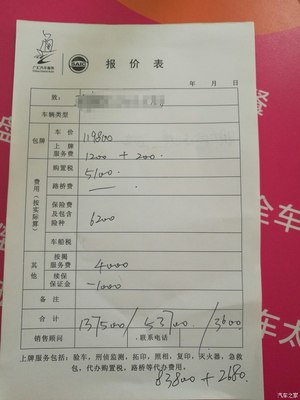 广汇汽车服务
SAIC
报价表
年 月 日
致：
车辆类型
包牌
车价 119800
上牌服务费 1200 + 200.
费用（按实际算）
购置税 5100.
路桥费 —
保险费及包含险种 6200
车船税
其他
按揭服务费 4000
续保保证金 -1000
备注
合计 137500 / 53700 / 3600
销售顾问 联系电话
上牌服务包括：验车，刑侦监测，拓印，照相，复印，灭火器，急救
包，代办购置税、路桥等代办费用。
83800 + 2680.
全车
太
汽车之家